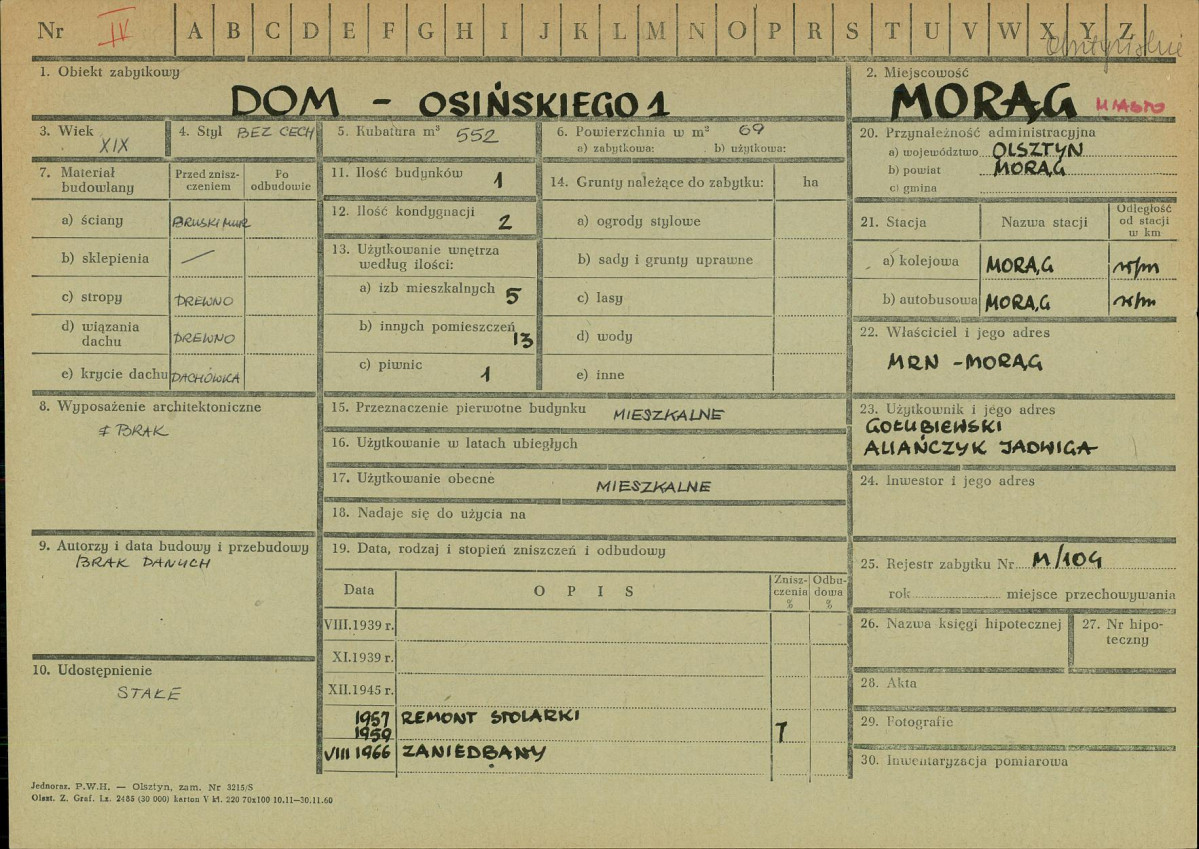 Nr IV A B C D E F G H I J K L M N O P R S T U V W X Y Z
1. Obiekt zabytkowy
DOM - OSIŃSKIEGO 1
2. Miejscowość
MORĄG MIASTO
3. Wiek
XIX
4. Styl BEZ CECH
5. Kubatura m³ 552
6. Powierzchnia w m² 69
a) zabytkowa: b) użytkowa:
7. Materiał budowlany
Przed zniszczeniem
Po odbudowie
a) ściany
b) sklepienia —
c) stropy DREWNO
d) wiązania dachu DREWNO
e) krycie dachu DACHÓWKA
8. Wyposażenie architektoniczne
BRAK
9. Autorzy i data budowy i przebudowy
BRAK DANYCH
10. Udostępnienie
STAŁE
11. Ilość budynków 1
12. Ilość kondygnacji 2
13. Użytkowanie wnętrza
według ilości:
a) izb mieszkalnych 5
b) innych pomieszczeń 13
c) piwnic 1
14. Grunty należące do zabytku: ha
a) ogrody stylowe
b) sady i grunty uprawne
c) lasy
d) wody
e) inne
15. Przeznaczenie pierwotne budynku MIESZKALNE
16. Użytkowanie w latach ubiegłych
17. Użytkowanie obecne MIESZKALNE
18. Nadaje się do użycia na
19. Data, rodzaj i stopień zniszczeń i odbudowy
Data OPIS Zniszczenia % Odbudowa %
VIII.1939 r.
XI.1939 r.
XII.1945 r.
1957 REMONT STOLARKI
1959
VIII 1966 ZANIEDBANY
20. Przynależność administracyjna
a) województwo OLSZTYN
b) powiat MORĄG
c) gmina
21. Stacja Nazwa stacji Odległość od stacji w km
a) kolejowa MORĄG w/m
b) autobusowa MORĄG w/m
22. Właściciel i jego adres
MRN - MORĄG
23. Użytkownik i jego adres
GOŁUBIEWSKI
ALIAŃCZYK JADWIGA
24. Inwestor i jego adres
25. Rejestr zabytku Nr M/109
rok miejsce przechowywania
26. Nazwa księgi hipotecznej
27. Nr hipoteczny
28. Akta
29. Fotografie
30. Inwentaryzacja pomiarowa
Jednoraz. P.W.H. — Olsztyn, zam. Nr 3215/S
Olszt. Z. Graf. Lz. 2485 (30 000) karton V kl. 220 70x100 10.11—30.11.60